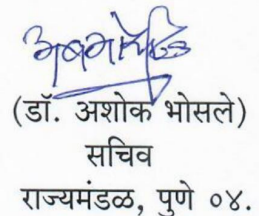 (डॉ. अशोक भोसले)
सचिव
राज्यमंडळ, पुणे ०४.